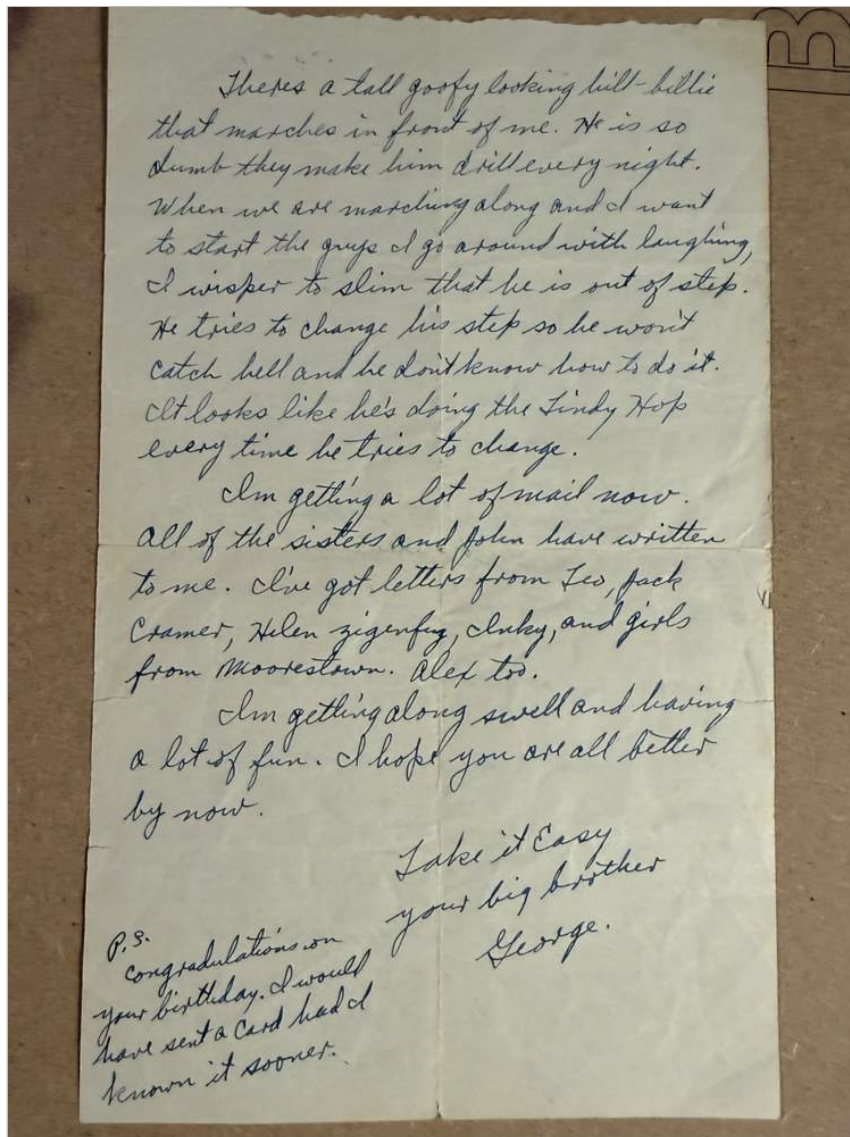 Theres a tall goofy looking hill-billie
that marches in front of me. He is so
dumb they make him drill every night.
When we are marching along and I want
to start the guys I go around with laughing,
I wisper to slim that he is out of step.
He tries to change his step so he won't
catch hell and he don't know how to do it.
It looks like he's doing the Lindy Hop
every time he tries to change.
Im getting a lot of mail now.
All of the sisters and John have written
to me. I've got letters from Leo, Jack
Cramer, Helen zigenfuz, Inky, and girls
from Moorestown. Alex too.
Im getting along swell and having
a lot of fun. I hope you are all better
by now.
Take it Easy
your big brother
George.
P.S.
Congradulations on
your birthday. I would
have sent a Card had I
known it sooner.
B